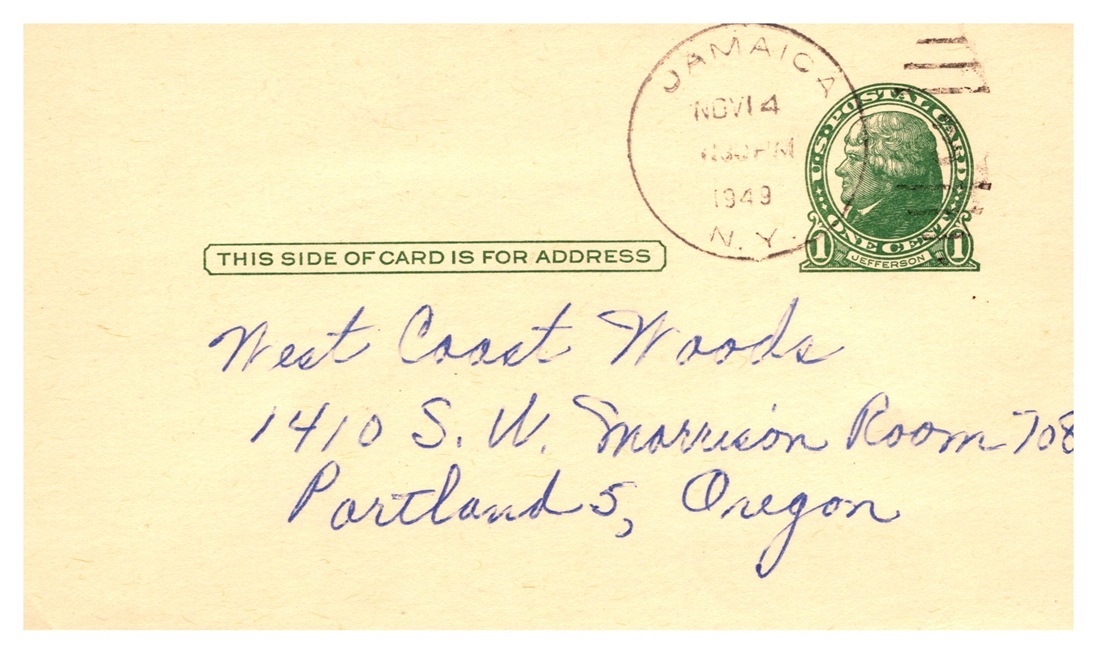 JAMAICA
NOV 14
PM
1949
N. Y.
U.S. POSTAL CARD
ONE CENT
1 JEFFERSON 1
THIS SIDE OF CARD IS FOR ADDRESS
West Coast Woods
1410 S. W. Morrison Room 708
Portland 5, Oregon